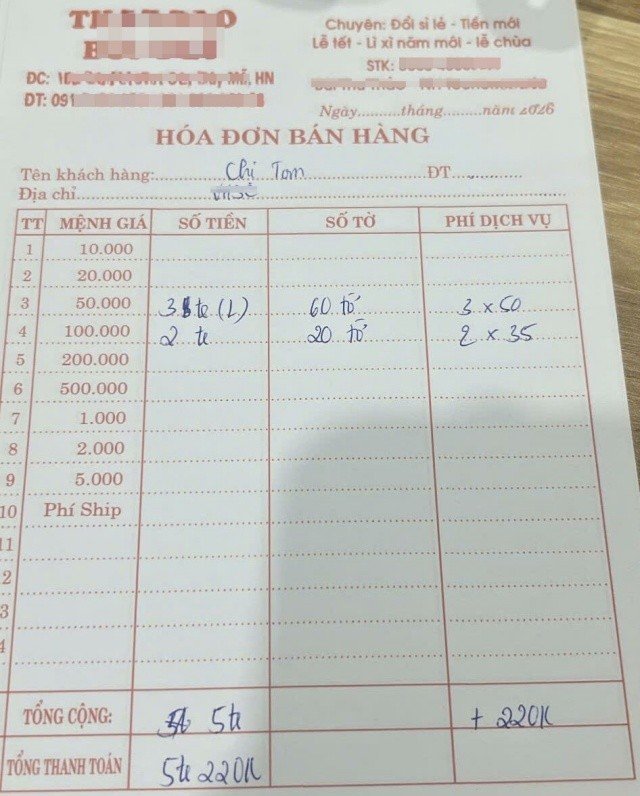 Chuyên: Đổi sỉ lẻ - Tiền mới
Lễ tết - Lì xì năm mới - lễ chùa
STK:
ĐC:
HN
ĐT: 091
Ngày..........tháng.........năm 2026
HÓA ĐƠN BÁN HÀNG
Tên khách hàng: Chị ĐT
Địa chỉ
TT MỆNH GIÁ SỐ TIỀN SỐ TỜ PHÍ DỊCH VỤ
1 10.000
2 20.000
3 50.000 3 te (L) 60 tờ 3 x 50
4 100.000 2 te 20 tờ 2 x 35
5 200.000
6 500.000
7 1.000
8 2.000
9 5.000
10 Phí Ship
11
2
3
4
TỔNG CỘNG: 5te + 220K
TỔNG THANH TOÁN 5te 220K